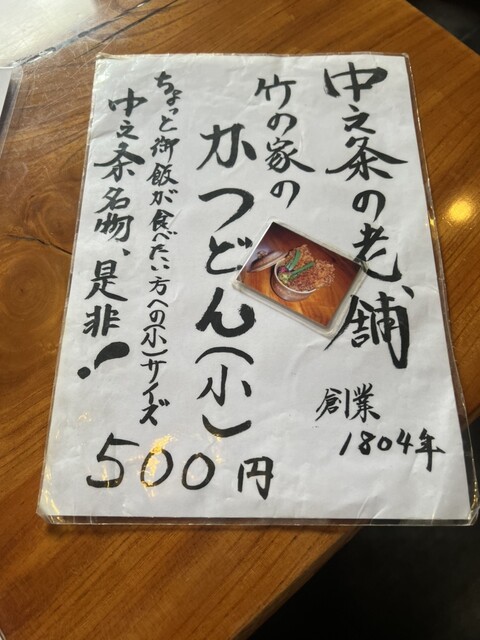 中之条の老舗
創業
1804年
竹の家の
かつどん(小)
ちょっと御飯が食べたい方への(小)サイズ
中之条名物、是非!
500円